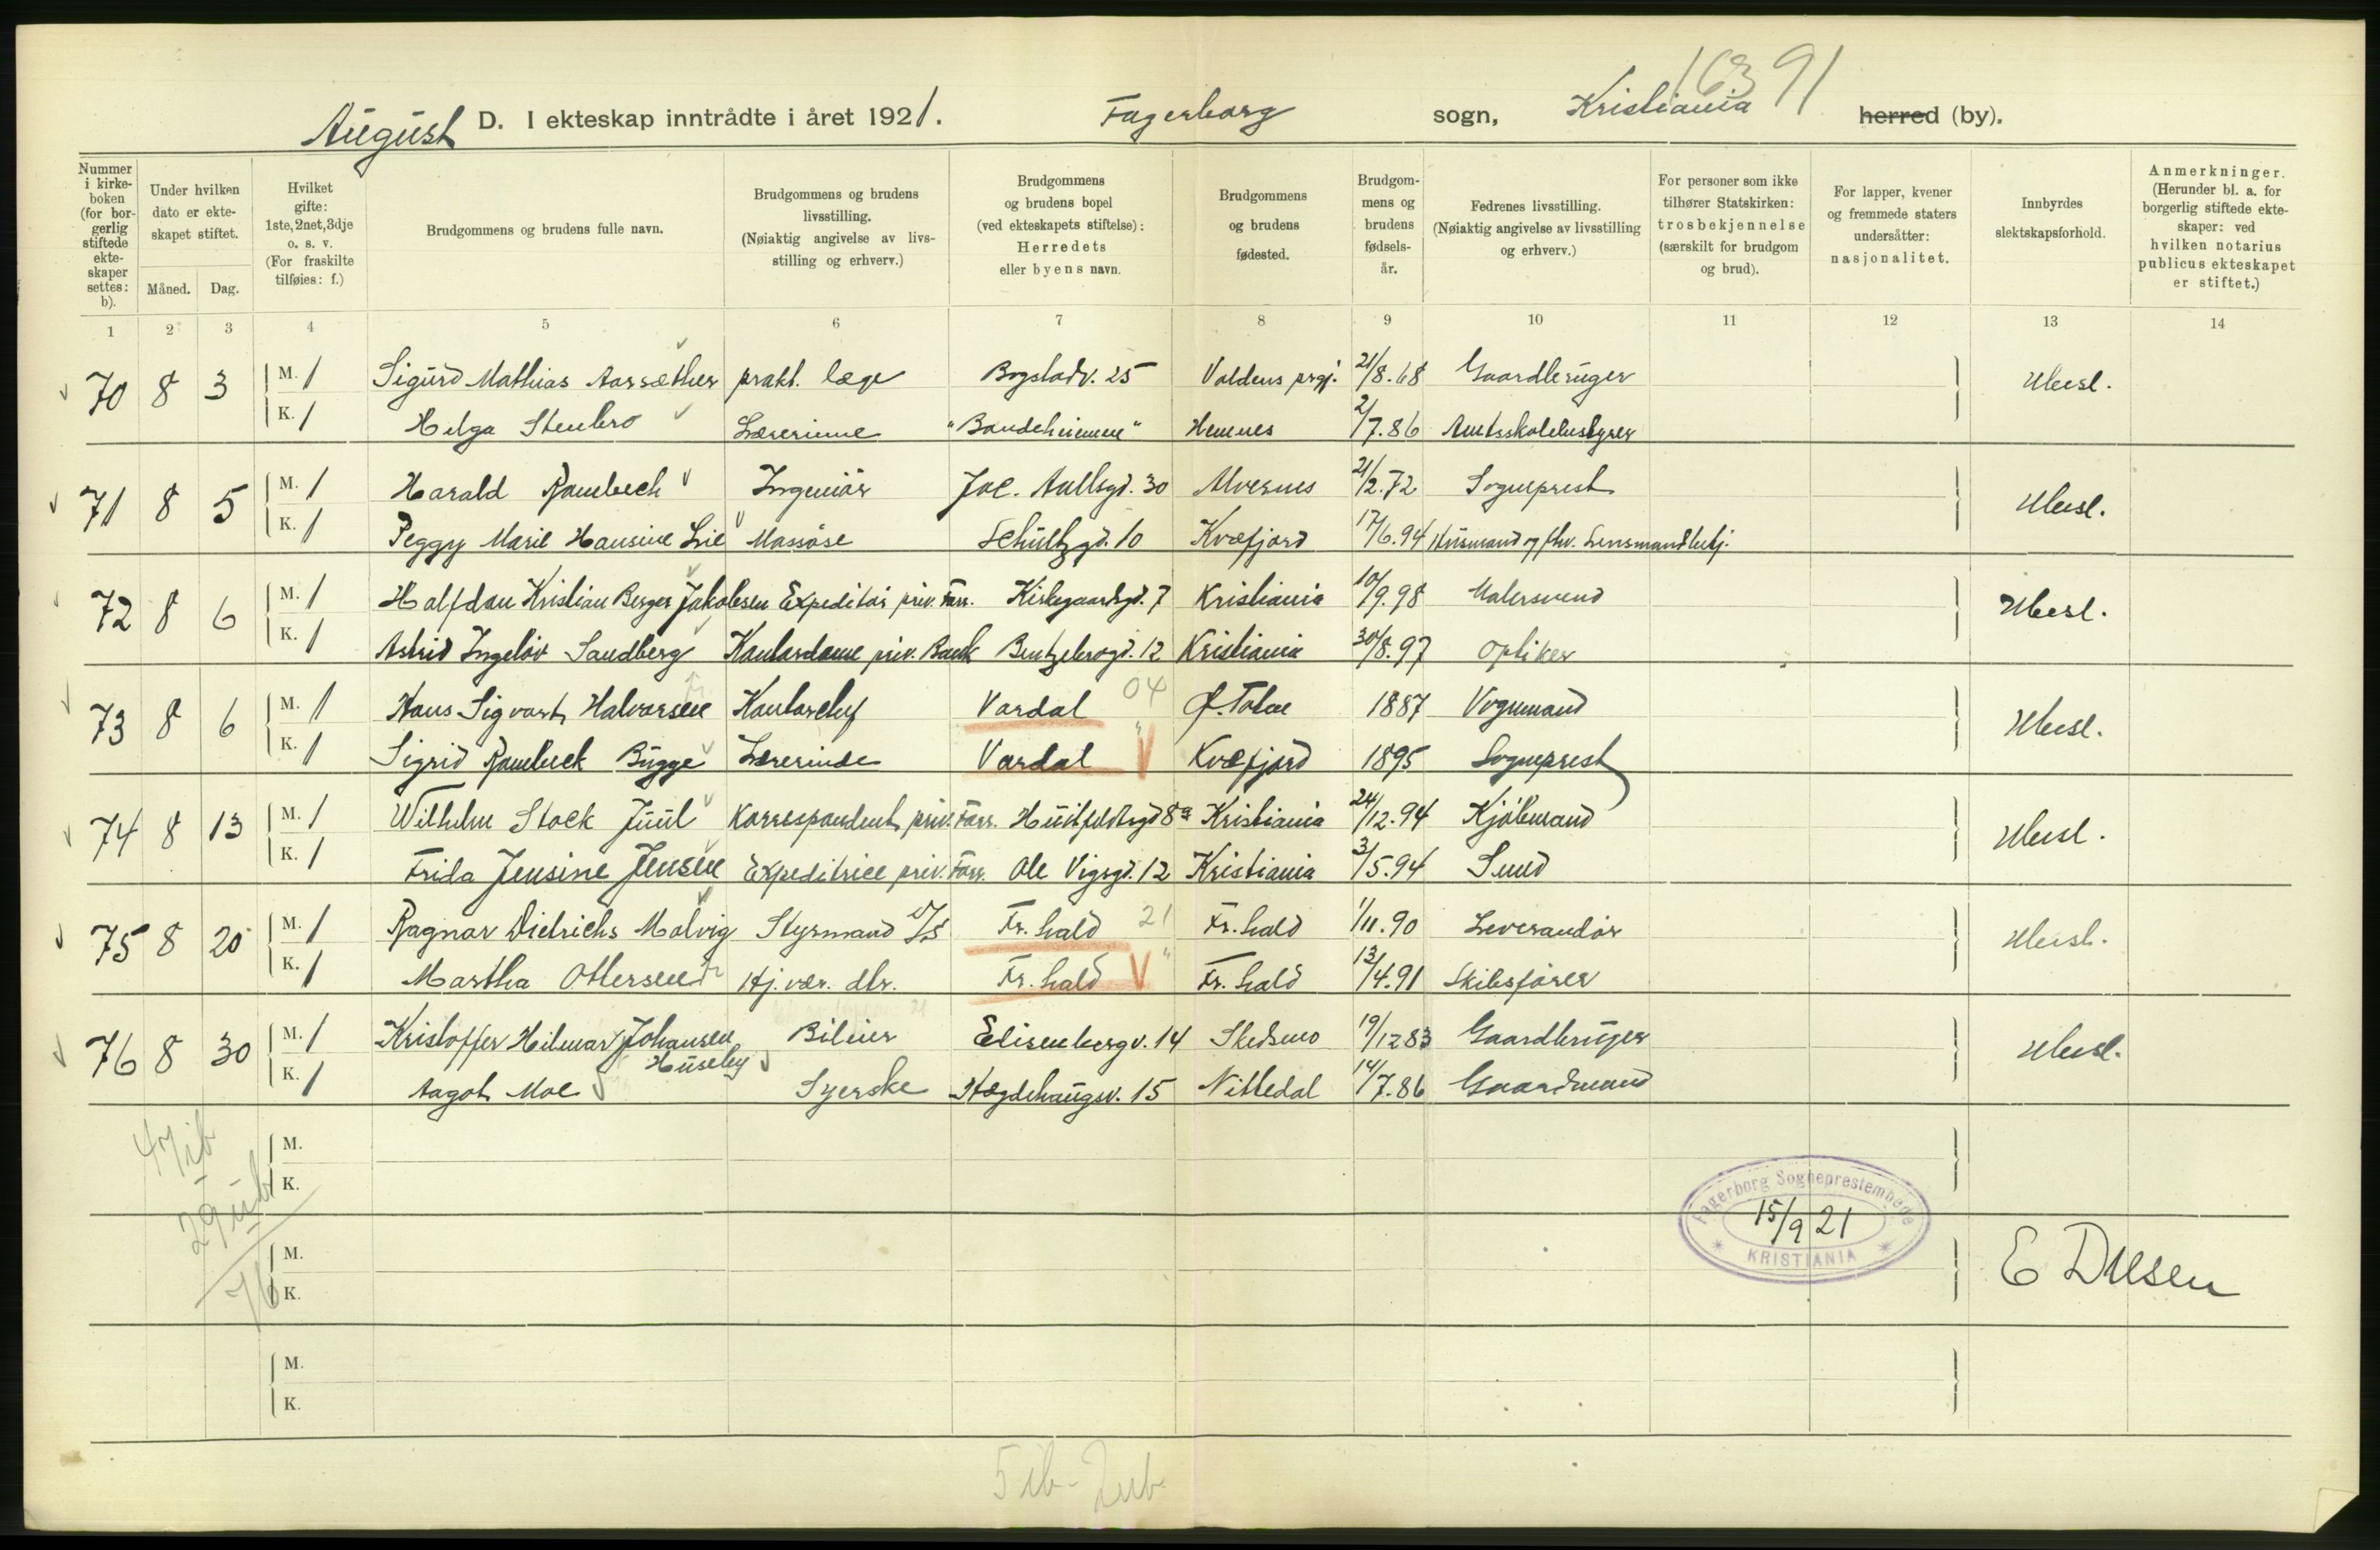 163 91
August D. I ekteskap inntrådte i året 1921. Fagerborg sogn, Kristiania herred (by).
Nummer i kirkeboken (for borgerlig stiftede ekteskaper settes: b).
Under hvilken dato er ekteskapet stiftet.
Måned. Dag.
Hvilket gifte: 1ste, 2net, 3dje o. s. v. (For fraskilte tilføies: f.)
Brudgommens og brudens fulle navn.
Brudgommens og brudens livsstilling. (Nøiaktig angivelse av livsstilling og erhverv.)
Brudgommens og brudens bopel (ved ekteskapets stiftelse): Herredets eller byens navn.
Brudgommens og brudens fødested.
Brudgommens og brudens fødselsår.
Fedrenes livsstilling. (Nøiaktig angivelse av livsstilling og erhverv.)
For personer som ikke tilhører Statskirken: trosbekjennelse (særskilt for brudgom og brud).
For lapper, kvener og fremmede staters undersåtter: nasjonalitet.
Innbyrdes slektskapsforhold.
Anmerkninger. (Herunder bl. a. for borgerlig stiftede ekteskaper: ved hvilken notarius publicus ekteskapet er stiftet.)
1 2 3 4 5 6 7 8 9 10 11 12 13 14
70 8 3 M. 1 Sigurd Mathias Aarsæther prakt. læge Bogstadv. 25 Voldens prgj. 21/8.68 Gaardbruger Ubesl.
K. 1 Helga Stenbro Lærerinne "Bondeheimen" Hemnes 2/7.86 Amtsskolebestyrer
71 8 5 M. 1 Harald Rambech Ingeniør Jac. Aallsgd. 30 Alversnes 21/2.72 Sogneprest Ubesl.
K. 1 Peggy Marie Hansine Lie Massøse Schultzgd. 10 Kvæfjord 17/6.94 Husmand og fhv. Lensmandsbetj.
72 8 6 M. 1 Halfdan Kristian Berger Jakobsen Expeditør priv. Forr. Kirkegaardsgd. 7 Kristiania 10/9.98 Malersvend Ubesl.
K. 1 Astrid Ingeløv Sandberg Kontordame priv. Bank Bentzebrogd. 12 Kristiania 30/8.97 Optiker
73 8 6 M. 1 Hans Sigvart Halvorsen Kontorchef Vardal 04 Ø. Toten 1887 Vognmand Ubesl.
K. 1 Sigrid Rambech Bugge Lærerinde Vardal " V Kvæfjord 1895 Sogneprest
74 8 13 M. 1 Wilhelm Stock Juul Korrespondent priv. Forr. Huitfeldtsgd 8a Kristiania 24/12.94 Kjøbmand Ubesl.
K. 1 Frida Jensine Jensen Expeditrice priv. Forr. Ole Vigsgd. 12 Kristiania 3/5.94 Smed
75 8 20 M. 1 Ragnar Dietrichs Malvig Styrmand D/S Fr.hald 21 Fr.hald 1/11.90 Leverandør Ubesl.
K. 1 Martha Ottersen Hj. vær. dtr. Fr.hald V " Fr.hald 13/4.91 Skibsfører
76 8 30 M. 1 Kristoffer Hilmar Johansen Huseby Bileier Elisenbergv. 14 Skedsmo 19/12 83 Gaardbruger Ubesl.
K. 1 Aagot Moe Syerske Hægdehaugsv. 15 Nittedal 14/7.86 Gaardmand
47 ib
M.
K.
29 ub
76
M.
K.
Fagerborg Sogneprestembede
15/9 21
KRISTIANIA
M.
K.
5 ib - 2 ub